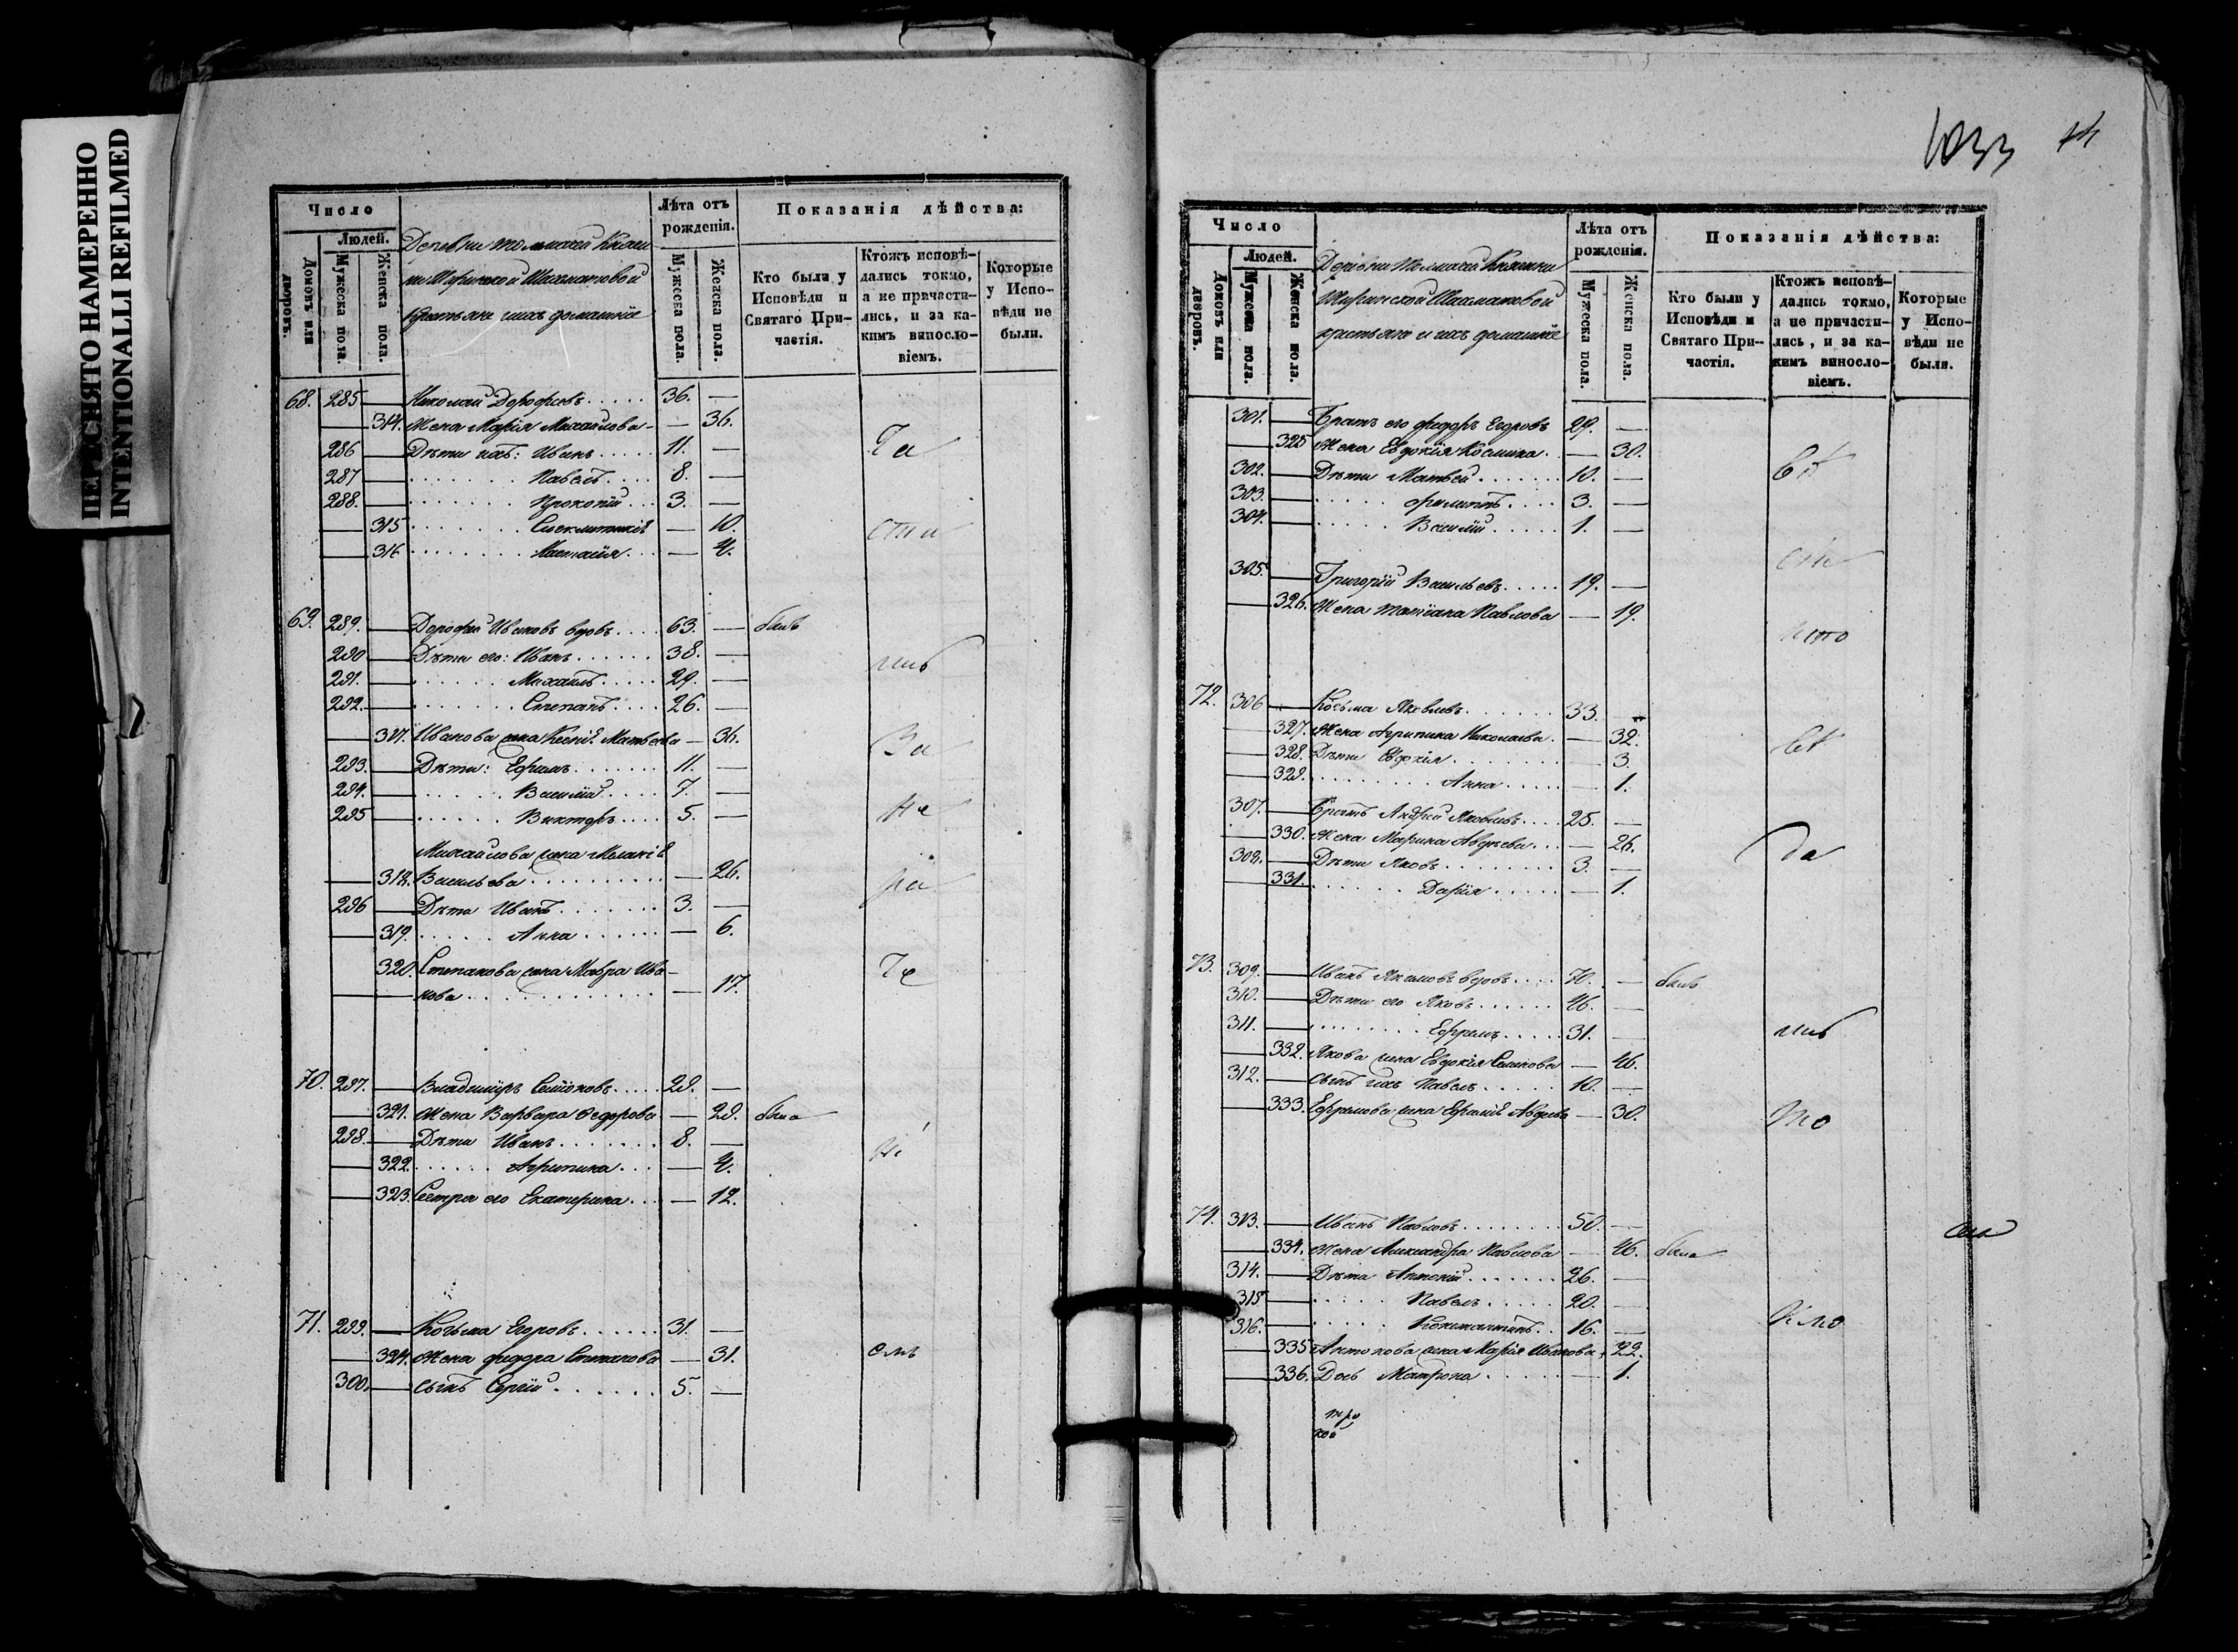 ПЕРЕСНЯТО НАМЕРЕННО
INTENTIONALLI REFILMED
Число
Людей.
Домовъ или дворовъ.
Мужеска пола.
Женска пола.
Деревни
крестьяне и ихъ домашніе
Лѣта отъ рожденія.
Мужеска пола.
Женска пола.
Показанія дѣйства:
Кто были у Исповѣди и Святаго Причастія.
Ктожъ исповѣдались токмо, а не причастились, и за какимъ винословіемъ.
Которые у Исповѣди не были.
68. 285 — Николай Дорофеевъ 36. —
— 314. Жена Марія Михайлова — 36.
286 — Дѣти ихъ: Иванъ 11. —
287 — Павелъ 8. —
288. — Прокопій 3. —
— 315 — 10.
— 316 — 4.
69. 289. — Дорофей Ивановъ вдовъ 63. — былъ
290 — Дѣти его: Иванъ 38. —
291. — Михаилъ 29. —
292. — Степанъ 26. —
317. Иванова жена Ксенія Матвеева — 36.
293. — Дѣти: Ефимъ 11 —
294. — Василій 7. —
295 — Викторъ 5. —
Михайлова жена Меланія
318. Васильева — 26.
296 — Дѣти Иванъ 3. —
— 319. Анна — 6.
320. Степанова жена Мавра Ива-
нова — 17.
70. 297. — Владимиръ 29. —
— 321. Жена Варвара Ѳедорова — 29. была
298. — Дѣти Иванъ 8. —
— 322. Агрипина — 4.
— 323. Сестра его Екатерина — 12.
71. 299. — Козьма Егоровъ 31. —
— 324. Жена Степанова — 31.
300. — Сынъ Сергій 5. —
1033
Число
Людей.
Домовъ или дворовъ.
Мужеска пола.
Женска пола.
Деревни
крестьяне и ихъ домашніе
Лѣта отъ рожденія.
Мужеска пола.
Женска пола.
Показанія дѣйства:
Кто были у Исповѣди и Святаго Причастія.
Ктожъ исповѣдались токмо, а не причастились, и за какимъ винословіемъ.
Которые у Исповѣди не были.
301. — Братъ его Федоръ Егоровъ 29. —
— 325 Жена Евдокія Космина — 30.
302. — Дѣти Матвей 10. —
303. — Филиппъ 3. —
304. — Василій 1. —
305. — Григорій Васильевъ 19. —
— 326. Жена Татіана Павлова — 19.
72. 306 — Козьма Яковлевъ 33. —
— 327. Жена Агрипина Николаева — 32.
— 328. Дѣти Евдокія — 3.
— 329. Анна — 1.
307. — Братъ Андрей Яковлевъ 25. —
— 330. Жена Марина Авдеева — 26.
308. — Дѣти Яковъ 3. —
— 331. Дарія — 1.
73. 309. — Иванъ Якимовъ вдовъ 70. — былъ
310. — Дѣти его Яковъ 46. —
311. — Ефремъ 31. —
— 332. Якова жена Евдокія Семенова — 46.
312. — Сынъ ихъ Павелъ 10. —
— 333. Ефремова жена Авдеева — 30.
74. 313. — Иванъ Павловъ 50. —
— 334. Жена Александра Павлова — 46. была
314. — Дѣти Антоній 26. —
315 — Павелъ 20. —
316. — Константинъ 16. —
— 335 Антонова жена Марія Иванова 22.
— 336. Дочь Матрона — 1.